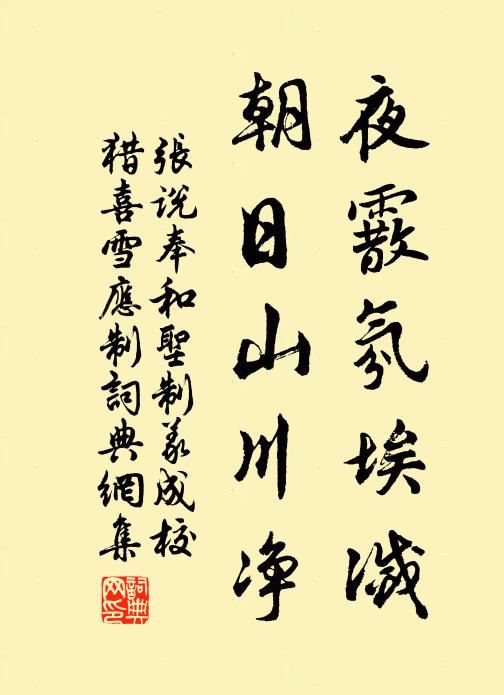 夜霰氛埃滅
朝日山川净
張说奉和聖制義成校
猎喜雪應制詞典網集